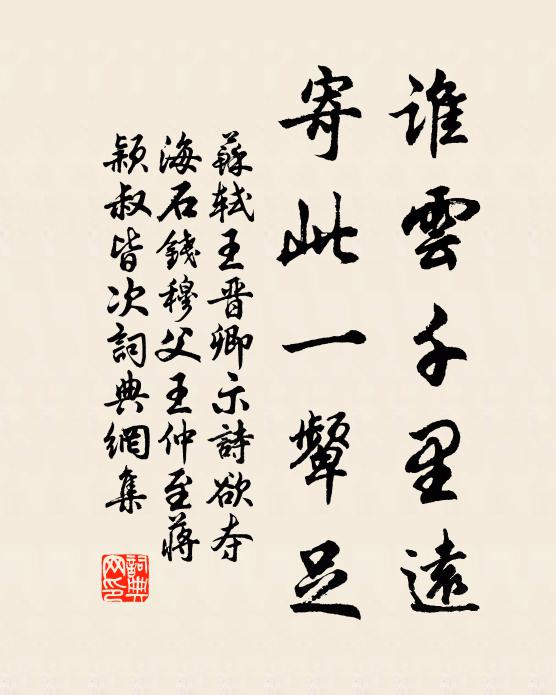 誰雲千里遠
寄此一顰足
蘇軾王晋卿示詩欲夺
海石錢穆父王仲至蔣
穎叔皆次詞典網集
詞典
网印